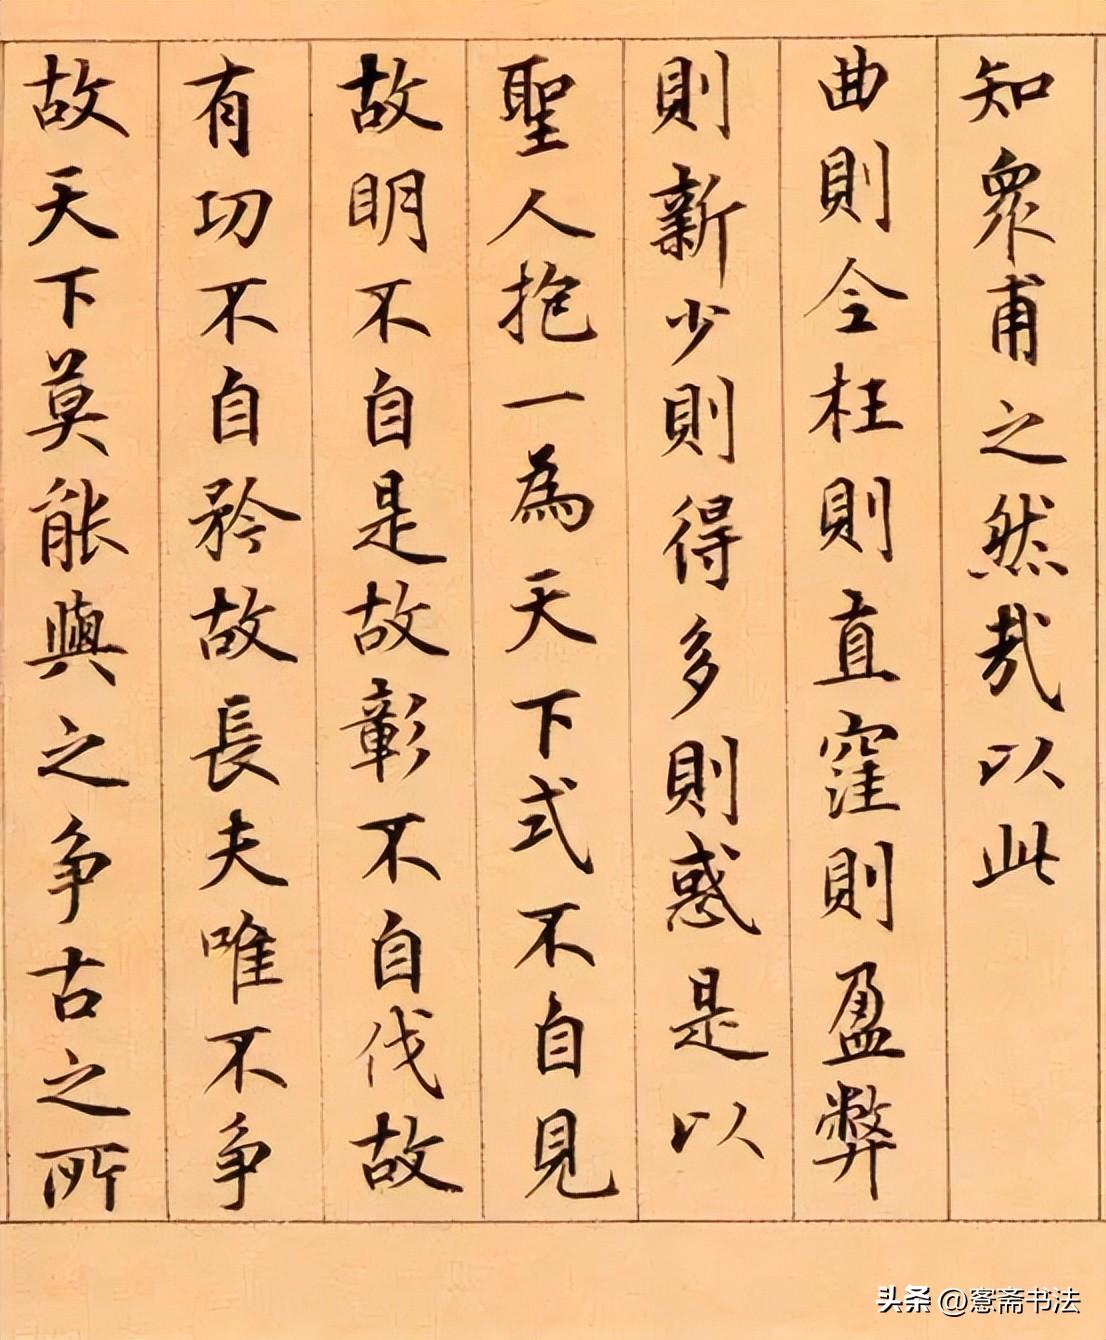 知衆甫之然哉以此
曲則全枉則直窪則盈弊
則新少則得多則惑是以
聖人抱一為天下式不自見
故明不自是故彰不自伐故
有功不自矜故長夫唯不争
故天下莫能與之争古之所
头条 @窓斋书法